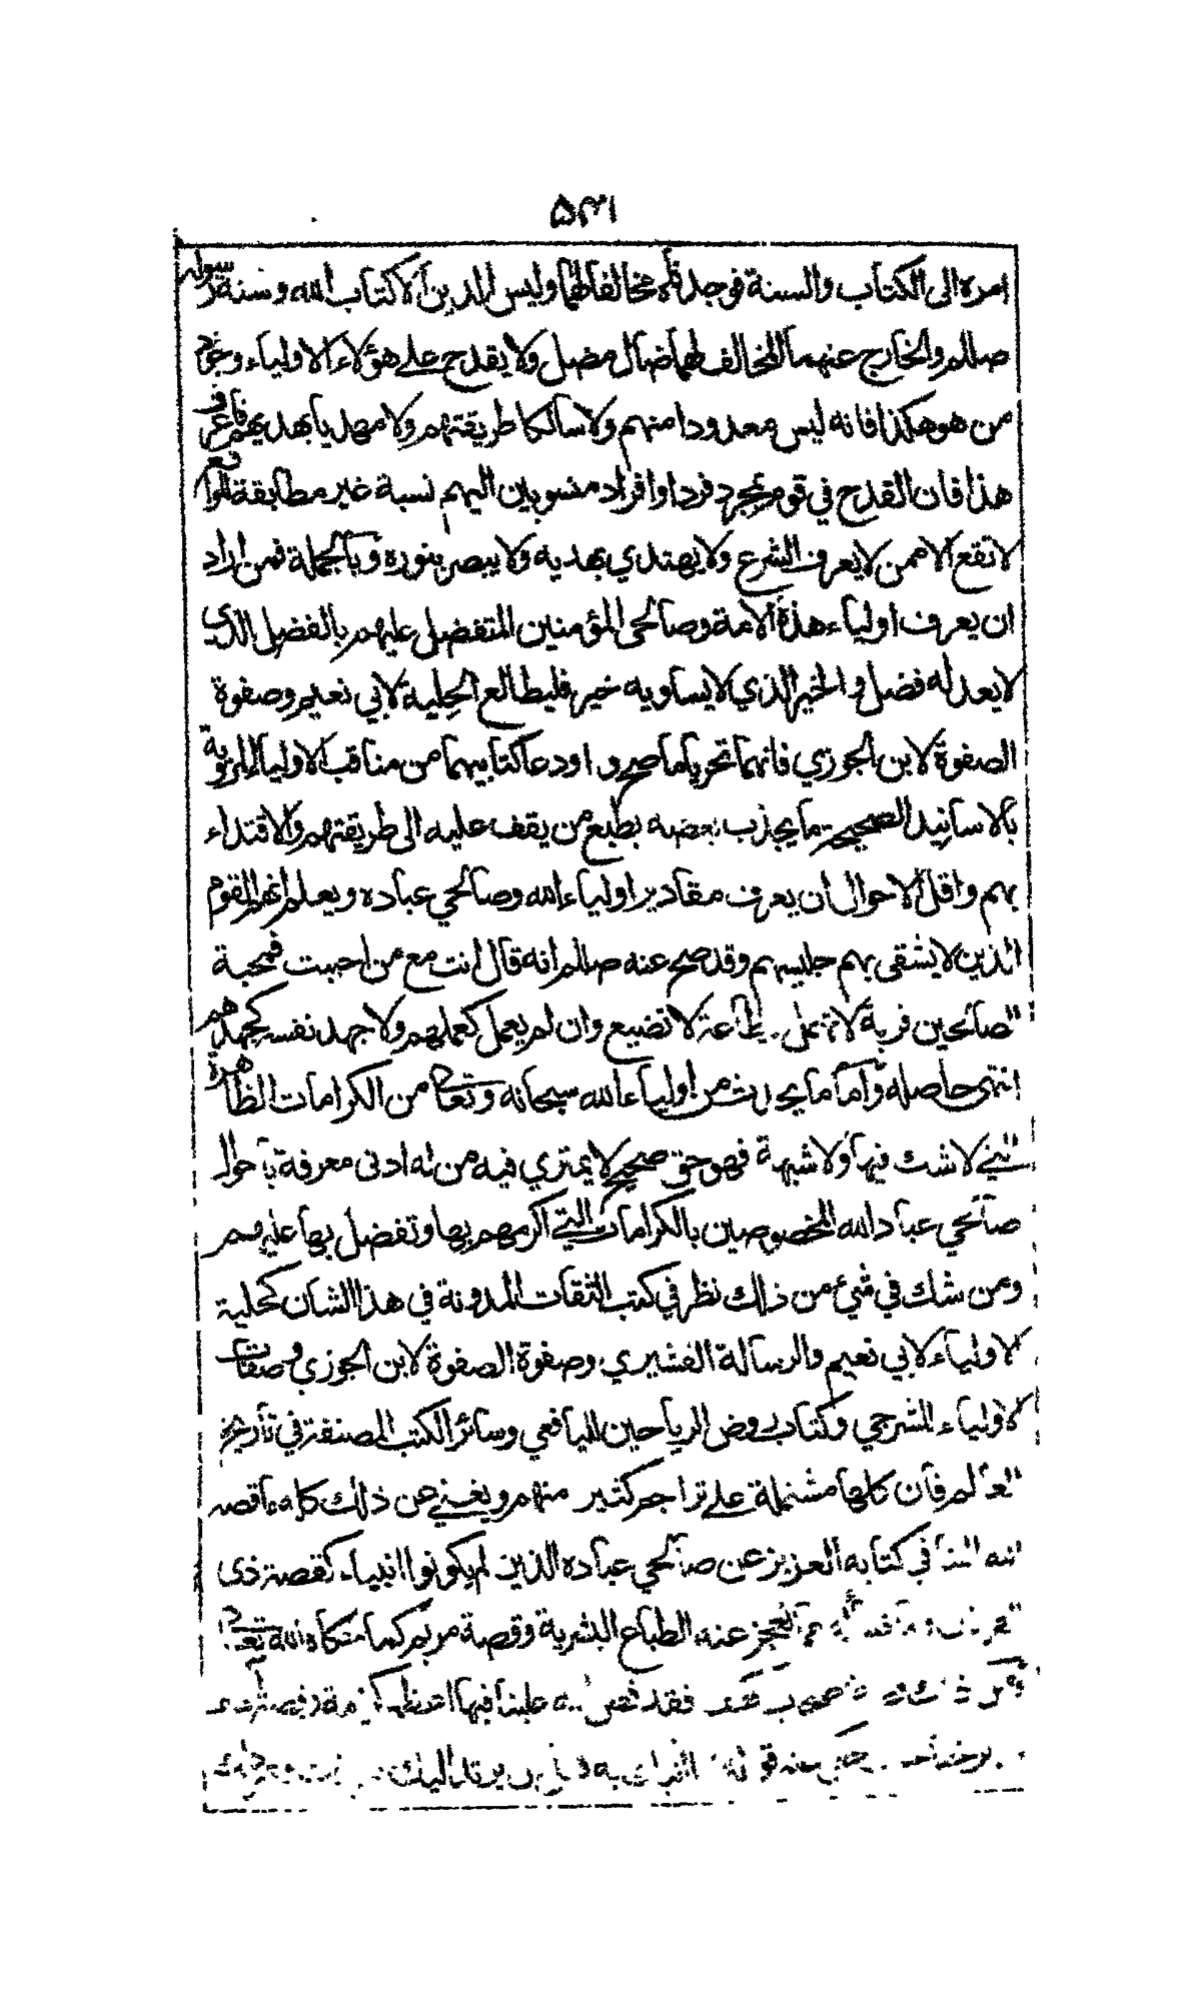 ٥٣١
امره الى الكتاب والسنة فوجدناه مخالفا لهما وليس الدين الا كتاب الله وسنة رسوله
صللم والخارج عنهما المخالف لهما ضال مضل ولا يقدح على هؤلاء الاولياء وجود
من هو هكذا فانه ليس معدودا منهم ولا سالكا طريقتهم ولا مهديا بهديهم فاعرف
هذا فان القدح في قوم بمجرد فرد او افراد منسوبين اليهم نسبة غير مطابقة للواقع
لا تقع الا ممن لا يعرف الشرع ولا يهتدي بهديه ولا يبصر بنوره وبالجملة فمن اراد
ان يعرف اولياء هذه الامة وصالحى المؤمنين المتفضل عليهم بالفضل الذى
لا يعدله فضل والخير الذي لا يساويه خير فليطالع الحلية لابي نعيم وصفوة
الصفوة لابن الجوزي فانهما تحريا ما صح واودعا كتابيهما من مناقب الاولياء المروية
بالاسانيد الصحيحة ما يجذب بعضه بطبع من يقف عليه الى طريقتهم والاقتداء
بهم واقل الاحوال ان يعرف مقادير اولياء الله وصالحي عباده ويعلم انهم القوم
الذين لا يشقى بهم جليسهم وقد صح عنه صللم انه قال انت مع من احببت فمحبة
الصالحين قربة لا تهمل وطاعة لا تضيع وان لم يعمل كعملهم ولا جهد نفسه كجهدهم
انتهى حاصله واما ما يحدث من اولياء الله سبحانه وتعالى من الكرامات الظاهرة
التي لا شك فيها ولا شبهة فهو حق صحيح لا يمتري فيه من له ادنى معرفة باحوال
صالحي عباد الله المخصوصين بالكرامات التي اكرمهم بها وتفضل بها عليهم
ومن شك في شيء من ذلك نظر في كتب الثقات المدونة في هذا الشان كحلية
الاولياء لابي نعيم والرسالة القشيري وصفوة الصفوة لابن الجوزي وصفات
الاولياء للشرجي وكتاب روض الرياحين لليافعي وسائر الكتب المصنفة في تاريخ
العالم فان كلها مشتملة على تراجم كثير منهم ويغني عن ذلك كله ما قصه
الله الينا في كتابه العزيز عن صالحي عباده الذين لم يكونوا انبياء كقصة ذى
القرنين وما تعجز عنه الطباع البشرية وقصة مريم كما حكاه الله تعالى
فقد قص علينا فيها
قوله اتيك به قبل ان يرتد اليك